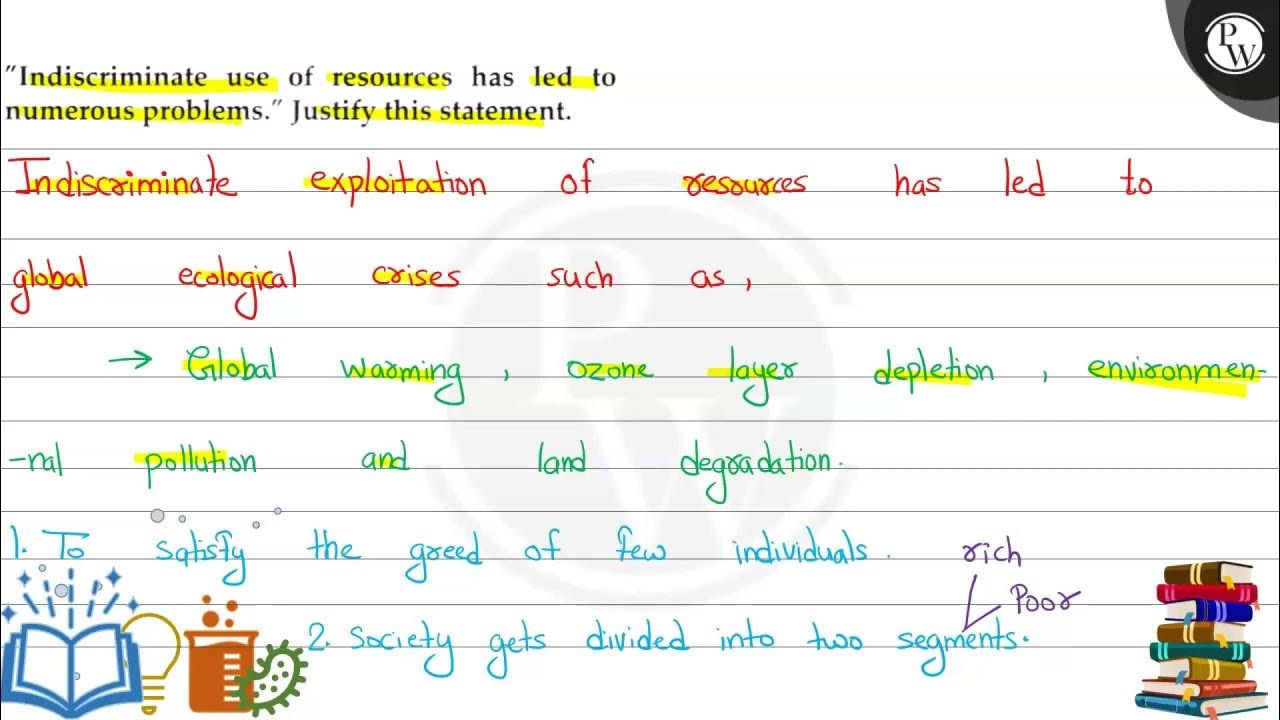 "Indiscriminate use of resources has led to
numerous problems." Justify this statement.
Indiscriminate exploitation of resources has led to
global ecological crises such as,
→ Global warming, ozone layer depletion, environmen-
-nal pollution and land degradation.
1. To satisfy the greed of few individuals.
rich
Poor
2. Society gets divided into two segments.
PW
PW